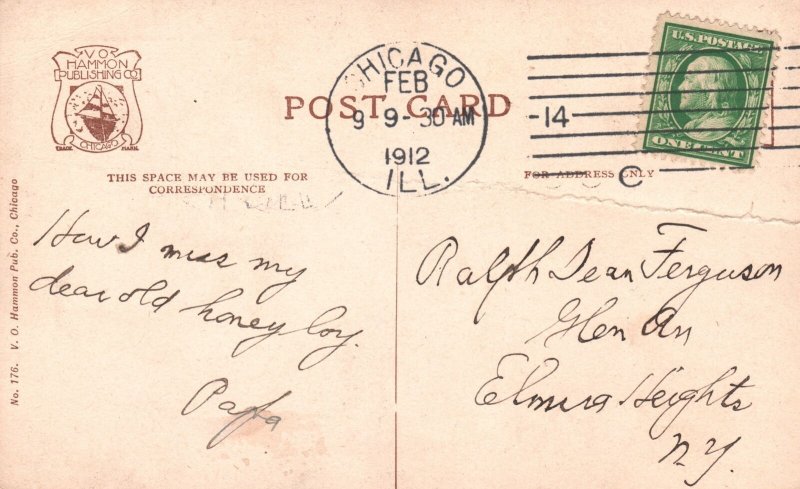 V.O.
HAMMON
PUBLISHING CO
CHICAGO
TRADE MARK
POST CARD
CHICAGO
FEB
9 9-30 AM
1912
ILL.
14
C
U.S. POSTAGE
ONE CENT
THIS SPACE MAY BE USED FOR
CORRESPONDENCE
FOR ADDRESS ONLY
No. 176. V. O. Hammon Pub. Co., Chicago
How I miss my
dear old honey boy.
Papa
Ralph Dean Ferguson
Glen Av
Elmira Heights
N.Y.